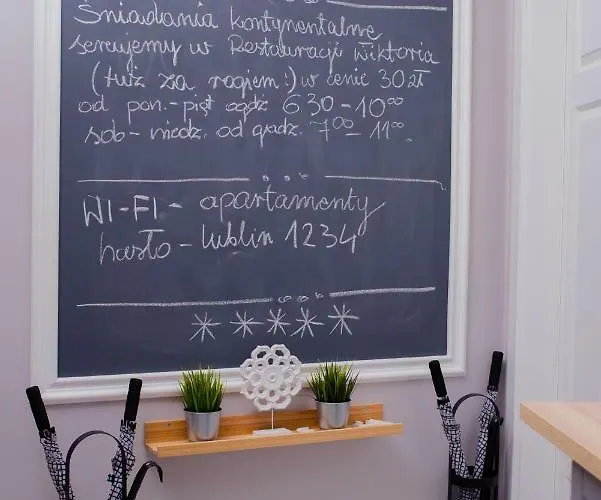 Śniadania kontynentalne
serwujemy w Restauracji Wiktoria
(tuż za rogiem :) w cenie 30 zł
od pon.-piąt godz 6 30 - 10 00
sob - niedz. od godz. 7 00 - 11 00.
WI-FI - apartamenty
hasło - lublin 1234